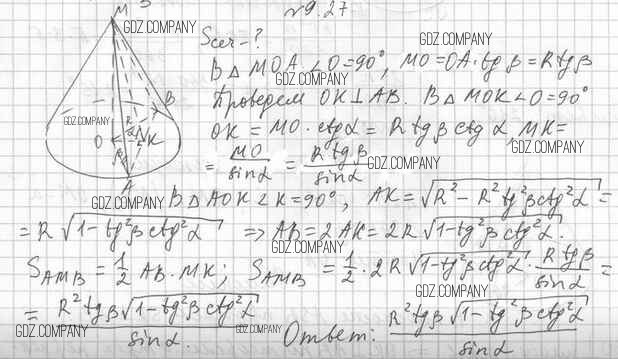 №9.27
M
GDZ.COMPANY
Sсеч-?
GDZ.COMPANY
В △ MOA ∠O=90°, MO=OA·tgβ=Rtgβ
GDZ.COMPANY
Проведем OK⊥AB. В △ MOK ∠O=90°
B
GDZ.COMPANY
R
O
α
K
β
A
OK = MO·ctgα = R tgβ ctgα, MK=
GDZ.COMPANY
= MO/sinα = R tgβ/sinα
GDZ.COMPANY
GDZ.COMPANY
В △ AOK ∠K=90°, AK=√(R²-R²tg²β ctg²α) =
= R√(1-tg²β ctg²α) ⇒ AB=2AK=2R√(1-tg²β ctg²α).
GDZ.COMPANY
S_AMB = 1/2 AB·MK; S_AMB = 1/2·2R√(1-tg²β ctg²α)·R tgβ/sinα =
GDZ.COMPANY
= R²tgβ√(1-tg²β ctg²α)/sinα. Ответ: R²tgβ√(1-tg²β ctg²α)/sinα
GDZ.COMPANY
GDZ.COMPANY
GDZ.COMPANY